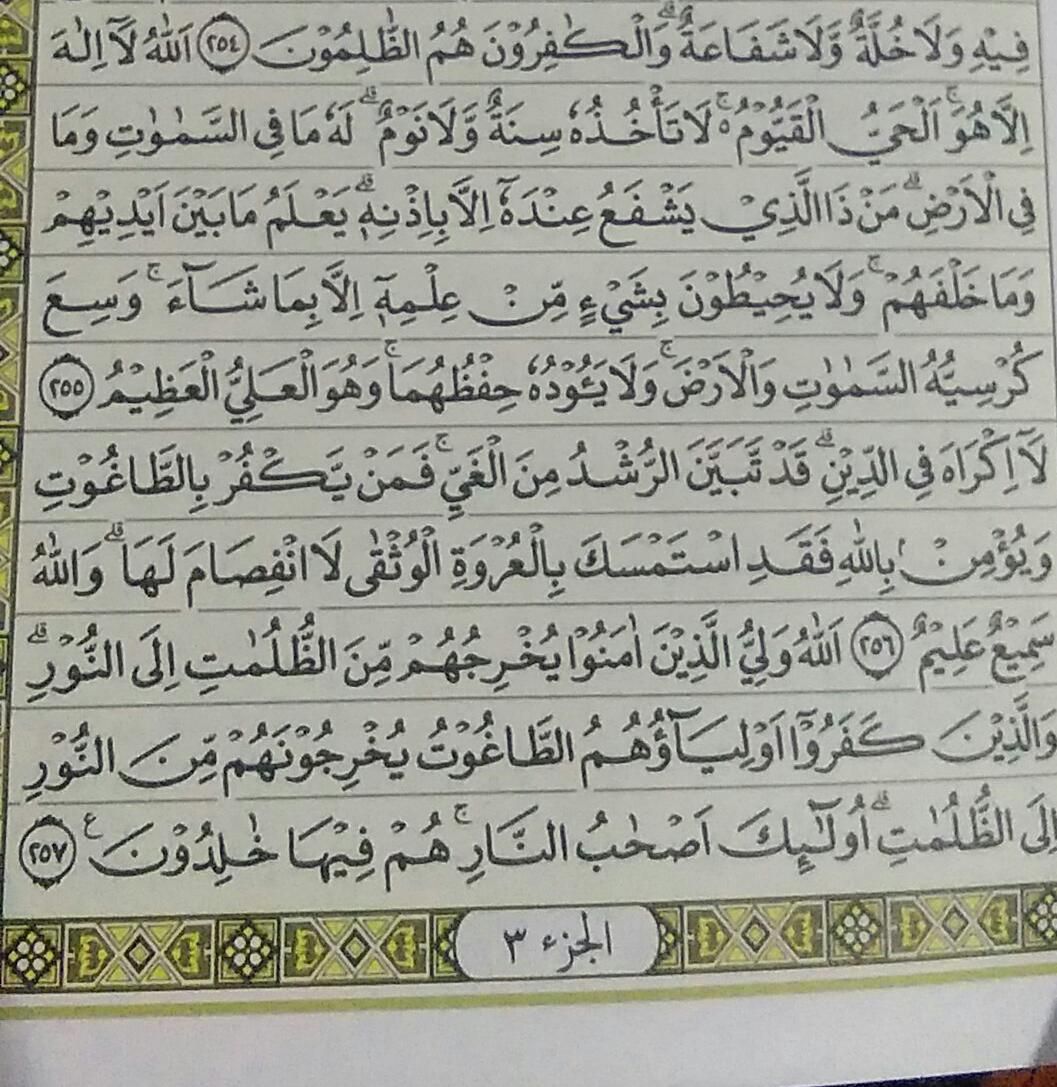 فِيْهِ وَلَا خُلَّةٌ وَّلَا شَفَاعَةٌ ۗوَالْكٰفِرُوْنَ هُمُ الظّٰلِمُوْنَ ٢٥٤ اَللّٰهُ لَآ اِلٰهَ
اِلَّا هُوَۚ اَلْحَيُّ الْقَيُّوْمُ ەۚ لَا تَأْخُذُهٗ سِنَةٌ وَّلَا نَوْمٌۗ لَهٗ مَا فِى السَّمٰوٰتِ وَمَا
فِى الْاَرْضِۗ مَنْ ذَا الَّذِيْ يَشْفَعُ عِنْدَهٗٓ اِلَّا بِاِذْنِهٖۗ يَعْلَمُ مَا بَيْنَ اَيْدِيْهِمْ
وَمَا خَلْفَهُمْۚ وَلَا يُحِيْطُوْنَ بِشَيْءٍ مِّنْ عِلْمِهٖٓ اِلَّا بِمَا شَاۤءَۚ وَسِعَ
كُرْسِيُّهُ السَّمٰوٰتِ وَالْاَرْضَۚ وَلَا يَـُٔوْدُهٗ حِفْظُهُمَاۚ وَهُوَ الْعَلِيُّ الْعَظِيْمُ ٢٥٥
لَآ اِكْرَاهَ فِى الدِّيْنِۗ قَدْ تَّبَيَّنَ الرُّشْدُ مِنَ الْغَيِّۚ فَمَنْ يَّكْفُرْ بِالطَّاغُوْتِ
وَيُؤْمِنْۢ بِاللّٰهِ فَقَدِ اسْتَمْسَكَ بِالْعُرْوَةِ الْوُثْقٰى لَا انْفِصَامَ لَهَاۗ وَاللّٰهُ
سَمِيْعٌ عَلِيْمٌ ٢٥٦ اَللّٰهُ وَلِيُّ الَّذِيْنَ اٰمَنُوْا يُخْرِجُهُمْ مِّنَ الظُّلُمٰتِ اِلَى النُّوْرِۗ
وَالَّذِيْنَ كَفَرُوْٓا اَوْلِيَاۤؤُهُمُ الطَّاغُوْتُ يُخْرِجُوْنَهُمْ مِّنَ النُّوْرِ
اِلَى الظُّلُمٰتِۗ اُولٰۤىِٕكَ اَصْحٰبُ النَّارِۚ هُمْ فِيْهَا خٰلِدُوْنَ ࣖ ٢٥٧
الجزء ٣